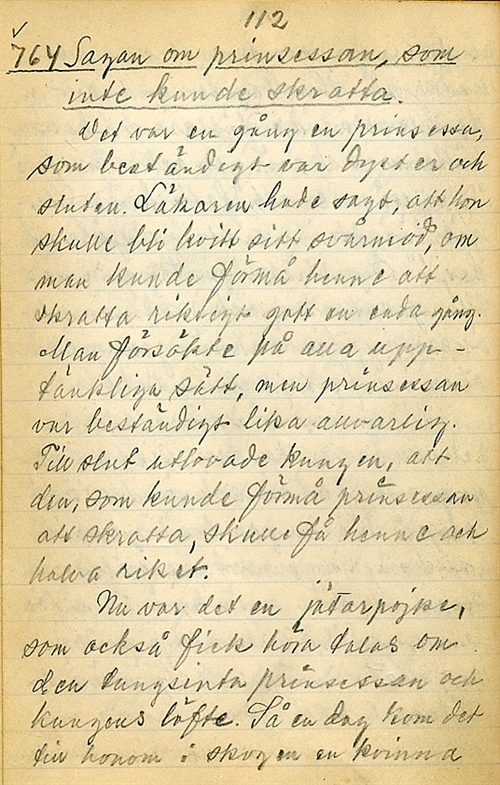 112
764 Sagan om prinsessan, som
inte kunde skratta.
Det var en gång en prinsessa,
som beständigt var dyster och
sluten. Läkaren hade sagt, att hon
skulle bli kvitt sitt svårmod, om
man kunde förmå henne att
skratta riktigt gott en enda gång.
Man försökte på alla upp-
tänkliga sätt, men prinsessan
var beständigt lika allvarlig.
Till slut utlovade kungen, att
den, som kunde förmå prinsessan
att skratta, skulle få henne och
halva riket.
Nu var det en jätarpojke,
som också fick höra talas om
den tungsinta prinsessan och
kungens löfte. Så en dag kom det
till honom i skogen en kvinna